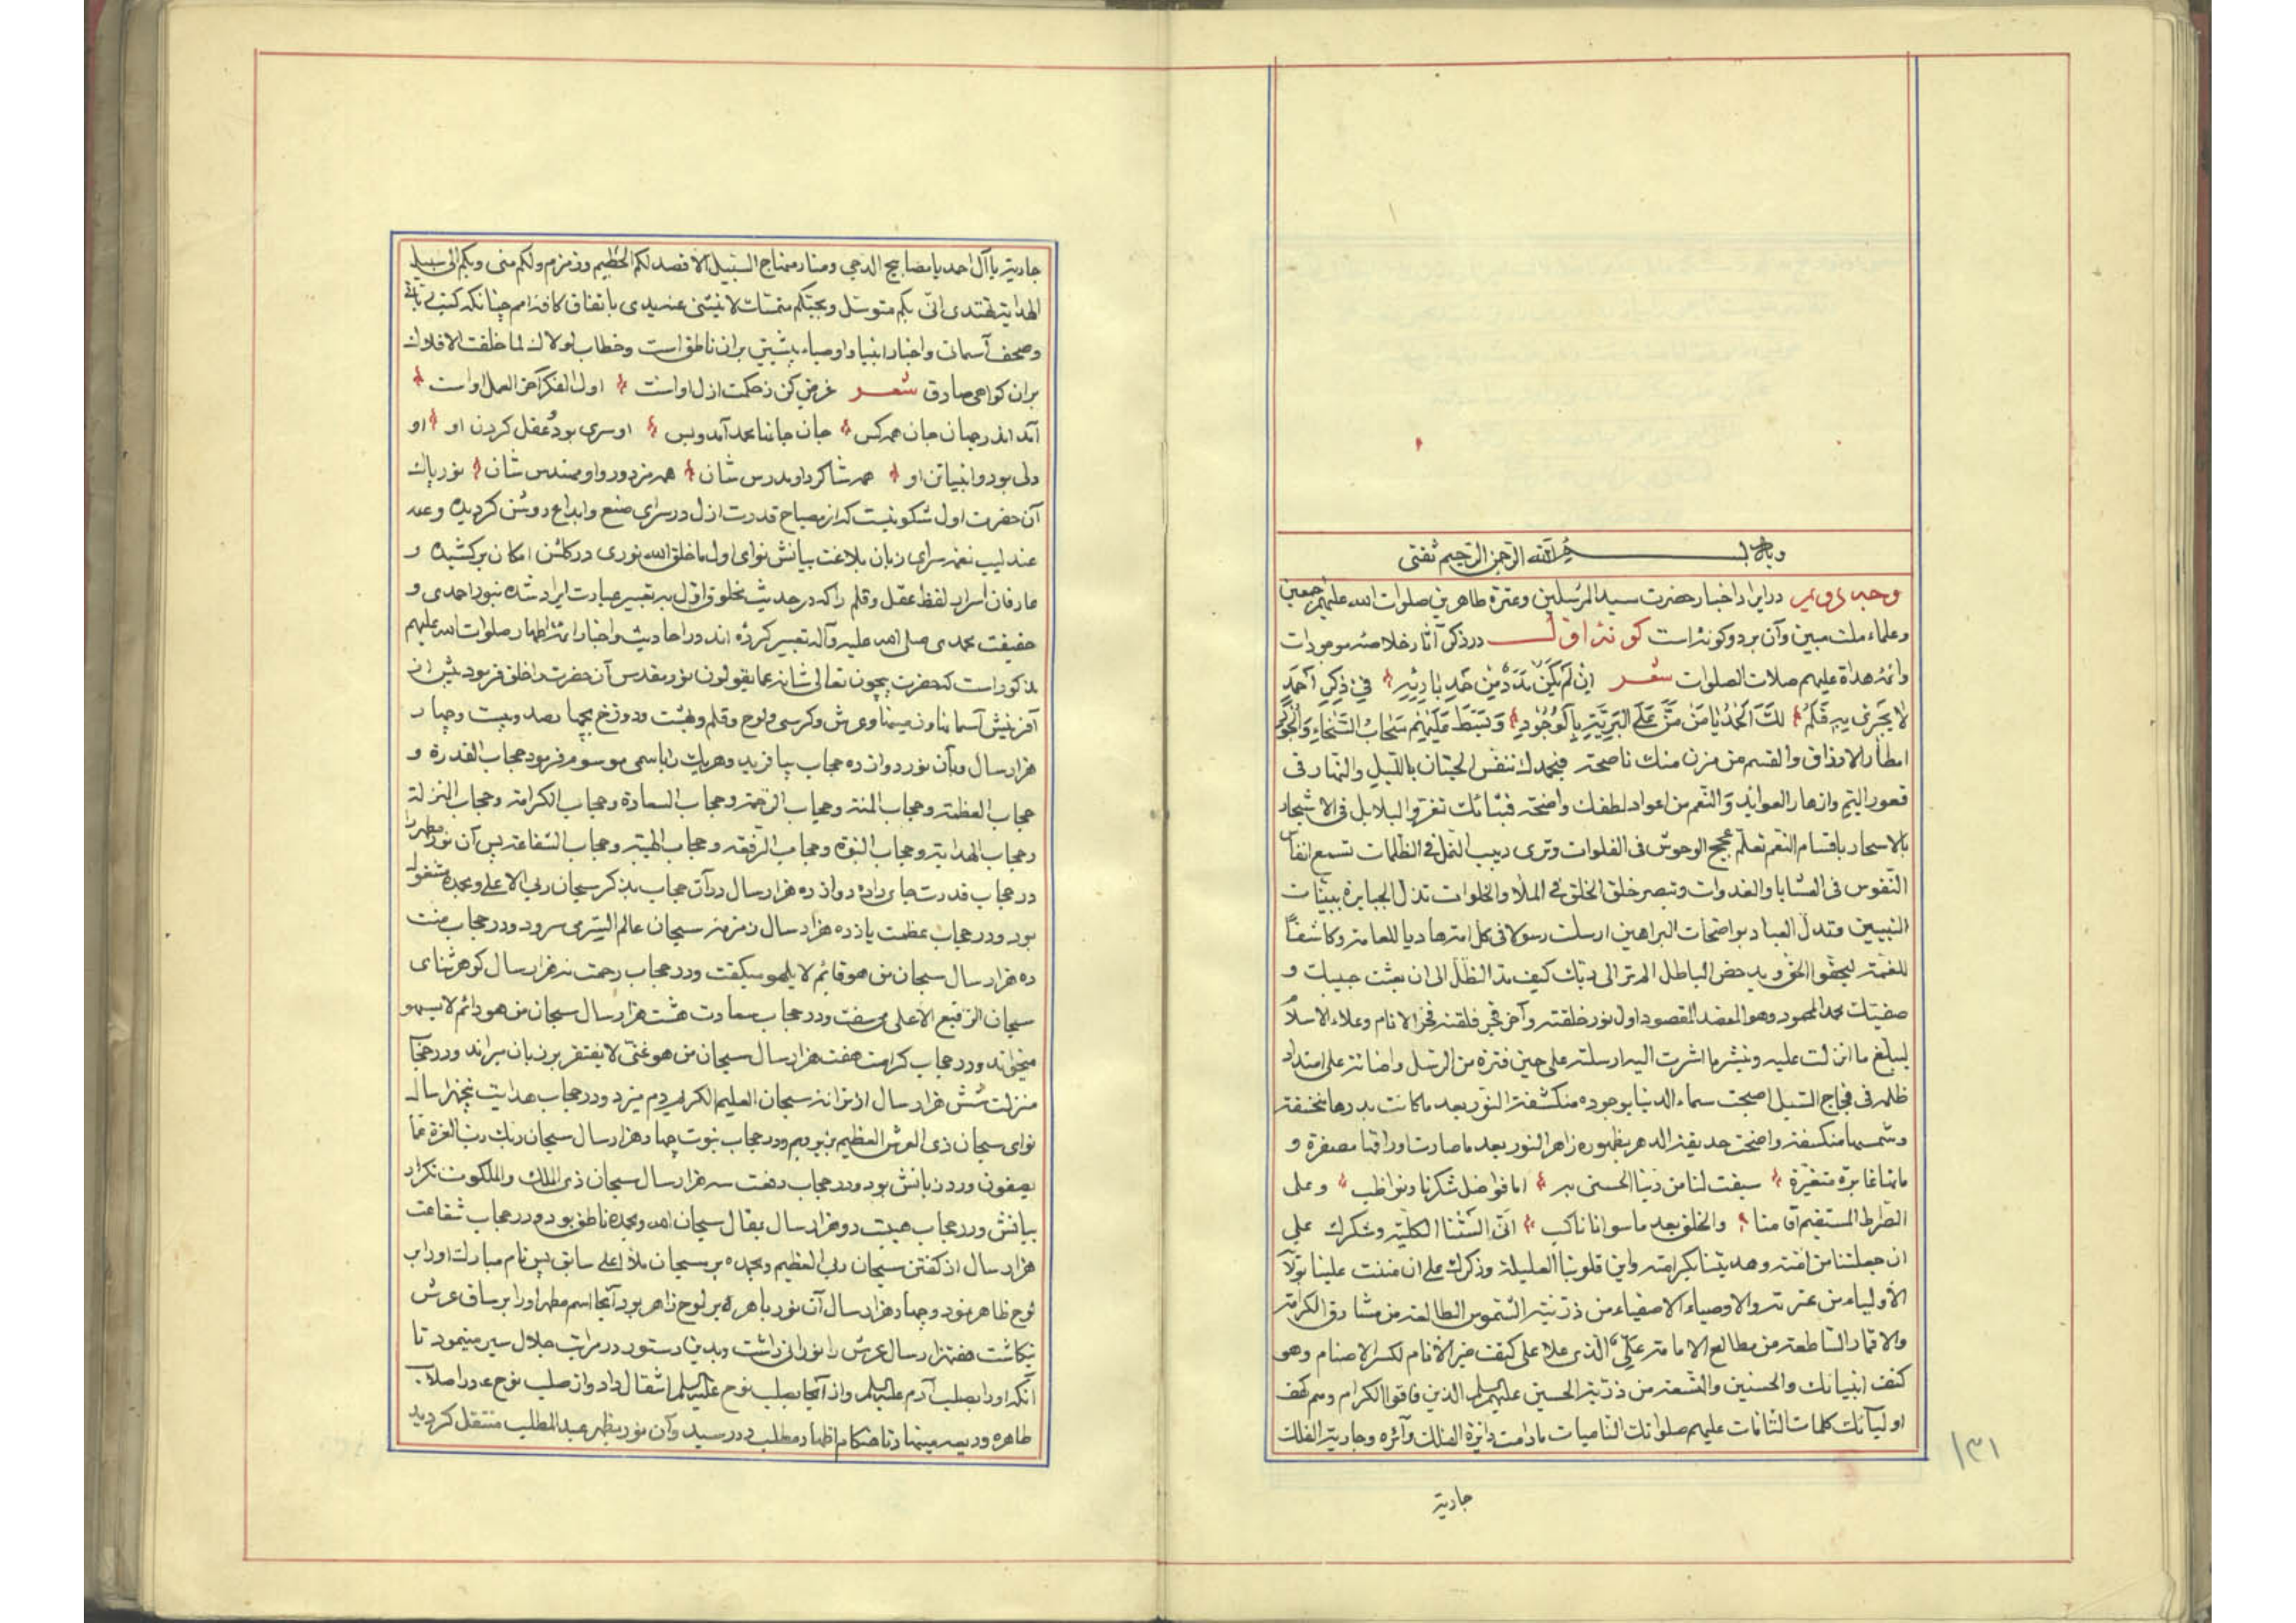 وبه بسم الله الرحمن الرحیم ثقتی
وجه دویم در ایراد اخبار حضرت سید المرسلین وعترة طاهرین صلوات الله علیهم اجمعین
وعلماء ملت مبین وآن بر دو کونه است کونه اول در ذکر آثار خلاصه موجودات
وائمه هداة علیهم صلات الصلوات شعر ان لم یکن مدد من حد باریه فی ذکر احمد
لا یجری به قلم لک الحمد یا من من علی البریة بالوجود وتبسط علیهم سحاب السخاء والجود
امطار الارزاق والقسم من مزن منک ناصحة فبحمدک تنفس الحیتان باللیل والنهار فی
قعور الیم وازهار العواید والنعم من اعواد لطفک واضحة فبثنائک تغرد البلابل فی الاشجار
بالاسحار باقسام النغم تعلم عجیج الوحوش فی الفلوات وتری دبیب النمل فی الظلمات تسمع انفاس
النفوس فی العشایا والغدوات وتبصر خلق الخلق فی الملأ والخلوات تذل الجبابرة ببینات
النبیین وتدل العباد بواضحات البراهین ارسلت رسولا فی کل امة هادیا للعامة وکاشفا
للغمة لیحقوا الحق وید حض الباطل الم تر الی ربک کیف مد الظل الی ان بعثت حبیبک و
صفیک محمد المحمود وهو المقصد المقصود اول نور خلقته وآخر فجر فلقته فخر الانام وعلاء الاسلام
لیبلغ ما انزلت علیه وینشر ما اشرت الیه ارسلته علی حین فترة من الرسل واضائة علی امتداد
ظلمة فی فجاج السبل اصبحت سماء الدنیا بوجوده منکشفة النور بعد ما کانت بدرها منخسفة
وشمسها منکسفة واضحت حدیقة الدهر بظهوره زاهر النور بعد ما صارت اوراقها مصفرة و
مائها غائرة متغیرة سبقت لنا من ربنا الحسنی به اما فواضل شکرنا ونواظب وعلی
الصراط المستقیم اقامنا والخلق بعد ما سوانا ناکب السنتنا الکلیلة وشکرک علی
ان جعلتنا من امته وهدیتنا بکرامته واین قلوبنا العلیلة وذکرک علی ان مننت علینا بولاء
الاولیاء من عترته والاوصیاء الاصفیاء من ذریته الشموس الطالعة من مشارق الکرامة
والاقمار الساطعة من مطالع الامامة علی الذی علا علی کتف خیر الانام لکسر الاصنام وهو
کنف انبیائک والحسنین والتسعة من ذریة الحسین علیهم السلم الذین فاقوا الکرام وهم کهف
اولیائک کلمات التامات علیهم صلواتک النامیات مادامت دائرة الفلک دائره وجاریة الفلک
جاریة
۱۳۱
جاریة یا آل احمد یا مصابیح الدجی ومنار منهاج السبیل الاقصد لکم الحطیم وزمزم ولکم منی وبکم الی سبیل
الهدایة نهتدی انی بکم متوسل وبحبکم متمسک لا ینثنی عنه یدی باتفاق کافه امم چنانکه کتب
وصحف آسمانی واخبار انبیا واوصیاء پیشین بران ناطق است وخطاب لولاک لما خلقت الافلاک
بران کواهی صادق شعر غرض کن ز حکمت ازل اوست اول الفکر آخر العمل اوست
آمد اندر جهان جان هر کس جان جانها محمد آمد وبس او سری بود وعقل کردن او او
دلی بود وانبیا تن او همه شاکرد او مدرس شان همه مزدور واو مهندس شان نور پاک
آن حضرت اول شکوفیست که از مصباح قدرت ازل در سرای صنع وابداع روشن کردیده و
عندلیب نغمه سرای زبان بلاغت بیانش نوای اول ما خلق الله نوری در کلشن امکان برکشیده و
عارفان اسرار لفظ عقل وقلم را که در حدیث مخلوق اول به تعبیر عبارت ایراد شده بنور احمدی و
حقیقت محمدی صلی الله علیه وآله تعبیر کرده اند در احادیث واخبار ائمه اطهار صلوات الله علیهم
مذکور است که حضرت بیچون تعالی شانه عما یقولون نور مقدس آن حضرت را خلق فرمود پیش از
آفرینش آسمانها وزمینها وعرش وکرسی ولوح وقلم وبهشت ودوزخ بچهار صد وبیست وچهار
هزار سال وبآن نور دوازده حجاب بیافرید وهر یک را باسمی موسوم فرمود حجاب القدرة و
حجاب العظمة وحجاب المنة وحجاب الرحمة وحجاب السعادة وحجاب الکرامة وحجاب المنزلة
وحجاب الهدایة وحجاب النبوة وحجاب الرفعة وحجاب الهیبة وحجاب الشفاعة پس آن نور مطهر را
در حجاب قدرت جای داده دوازده هزار سال در آن حجاب بذکر سبحان ربی الاعلی وبحمده مشغول
بود ودر حجاب عظمت یازده هزار سال زمزمه سبحان عالم السر می سرود ودر حجاب منت
ده هزار سال سبحان من هو قائم لا یلهو میکفت ودر حجاب رحمت نه هزار سال کوهر ثنای
سبحان الرفیع الاعلی می سفت ودر حجاب سعادت هشت هزار سال سبحان من هو دائم لا یسهو
میخواند ودر حجاب کرامت هفت هزار سال سبحان من هو غنی لا یفتقر بر زبان میراند ودر حجاب
منزلت شش هزار سال از ترانه سبحان العلیم الکریم دم میزد ودر حجاب هدایت پنجهزار سال
نوای سبحان ذی العرش العظیم ودر حجاب نبوت چهار هزار سال سبحان ربک رب العزة عما
یصفون ورد زبانش بود ودر حجاب رفعت سه هزار سال سبحان ذی الملک والملکوت تکرار
بیانش ودر حجاب هیبت دو هزار سال بمقال سبحان الله وبحمده ناطق بود ودر حجاب شفاعت
هزار سال از کفتن سبحان ربی العظیم وبحمده بر سبحان ملأ اعلی سابق پس نام مبارک او را بر
لوح ظاهر نمود وچهار هزار سال آن نور باهره بر لوح زاهر بود آنجا اسم مطهر او را بر ساق عرش
نکاشت هفتهزار سال عرش را نورانی داشت وبدین دستور در مراتب جلال سیر مینمود تا
آنکه او را بصلب آدم علیه السلم واز آنجا بصلب نوح علیه السلم انتقال داد واز صلب نوح در اصلاب
طاهره ودیعه مینهاد تا هنکام اظهار مطلب در رسید وآن نور بظهر عبد المطلب منتقل کردید